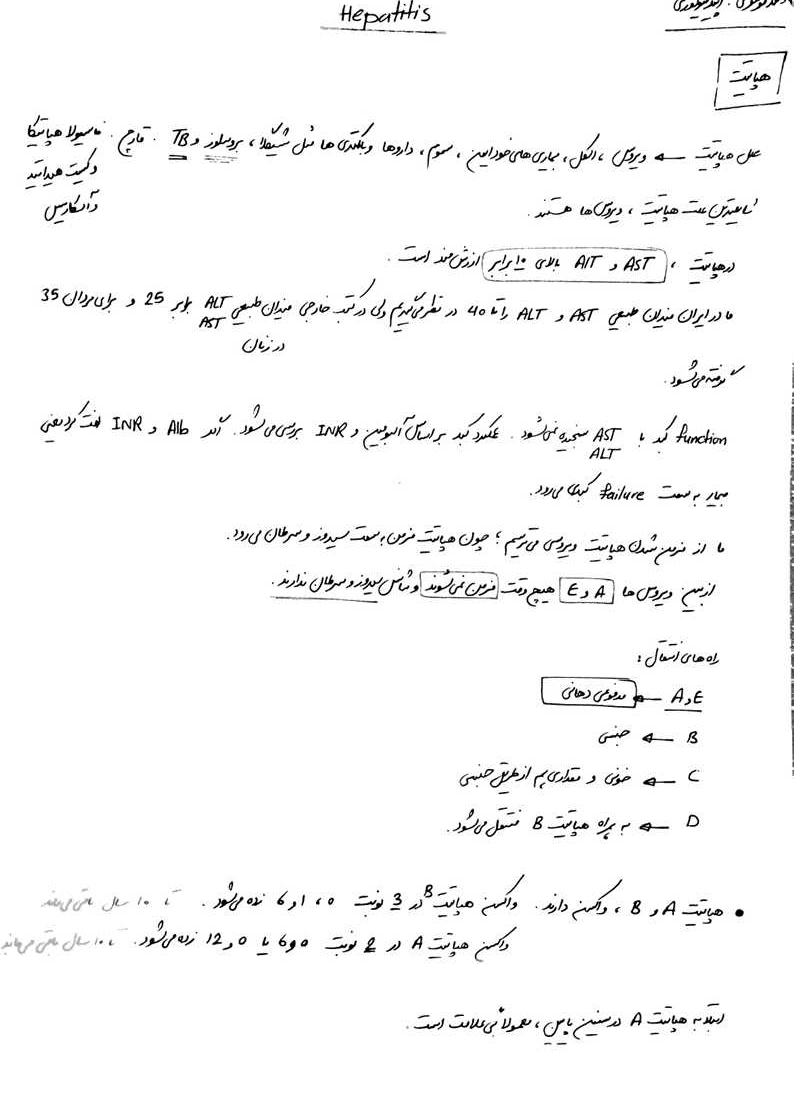 Hepatitis
هپاتیت
علل هپاتیت ← ویروس، الکل، بیماری های خودایمن، سموم، داروها و باکتری ها مثل شیگلا، بروسلوز و TB. قارچ. فاسیولا هپاتیکا
و کیست هیداتید
و آسکاریس
شایعترین علت هپاتیت، ویروس ها هستند.
در هپاتیت، AST و AlT بالای 10 برابر ارزش مند است.
ما در ایران میزان طبیعی AST و ALT را تا 40 در نظر می گیریم ولی در کتب خارجی میزان طبیعی ALT AST برابر 25 و برای مردان 35
در زنان
گرفته می شود.
function کبد با AST ALT سنجیده نمی شود. عملکرد کبد بر اساس آلبومین و INR بررسی می شود. اگر Alb و INR افت کرد یعنی
بیمار به سمت failure کبدی می رود.
ما از مزمن شدن هپاتیت ویروسی می ترسیم؛ چون هپاتیت مزمن به سمت سیروز و سرطان می رود.
از بین ویروس ها A و E هیچ وقت مزمن نمی شوند و شانس سیروز و سرطان ندارند.
راه های انتقال:
A و E ← مدفوعی دهانی
B ← جنسی
C ← خونی و مقداری هم از طریق جنسی
D ← به همراه هپاتیت B منتقل می شود.
• هپاتیت A و B، واکسن دارند. واکسن هپاتیت B در 3 نوبت 0، 1 و 6 زده می شود. تا 10 سال باقی می ماند
واکسن هپاتیت A در 2 نوبت 0 و 6 یا 0 و 12 زده می شود. تا 10 سال باقی می ماند
ابتلا به هپاتیت A در سنین پایین، معمولاً بی علامت است.